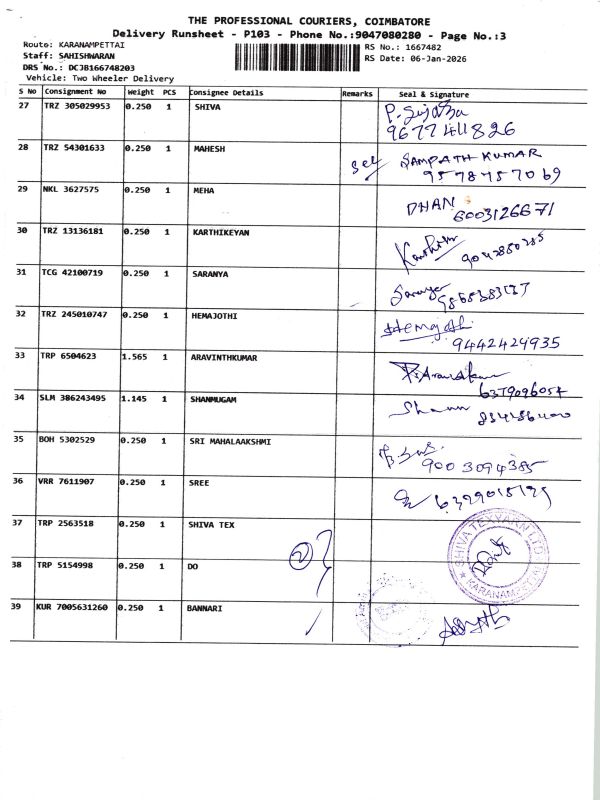 THE PROFESSIONAL COURIERS, COIMBATORE
Delivery Runsheet - P103 - Phone No.:9047080280 - Page No.:3
Route: KARANAMPETTAI
RS No.: 1667482
Staff: SAHISHWARAN
RS Date: 06-Jan-2026
DRS No.: DCJB166748203
Vehicle: Two Wheeler Delivery
S No Consignment No Weight PCS Consignee Details Remarks Seal & Signature
27 TRZ 305029953 0.250 1 SHIVA
9677411826
28 TRZ 54301633 0.250 1 MAHESH SAMPATH KUMAR
9578757069
29 NKL 3627575 0.250 1 MEHA DHAN
6003126671
30 TRZ 13136181 0.250 1 KARTHIKEYAN
31 TCG 42100719 0.250 1 SARANYA
32 TRZ 245010747 0.250 1 HEMAJOTHI
9442424935
33 TRP 6504623 1.565 1 ARAVINTHKUMAR
34 SLM 386243495 1.145 1 SHANMUGAM
35 BOH 5302529 0.250 1 SRI MAHALAAKSHMI
9003094385
36 VRR 7611907 0.250 1 SREE
37 TRP 2563518 0.250 1 SHIVA TEX
SHIVA TEXYARN LTD
KARANAMPETTAI
38 TRP 5154998 0.250 1 DO
39 KUR 7005631260 0.250 1 BANNARI